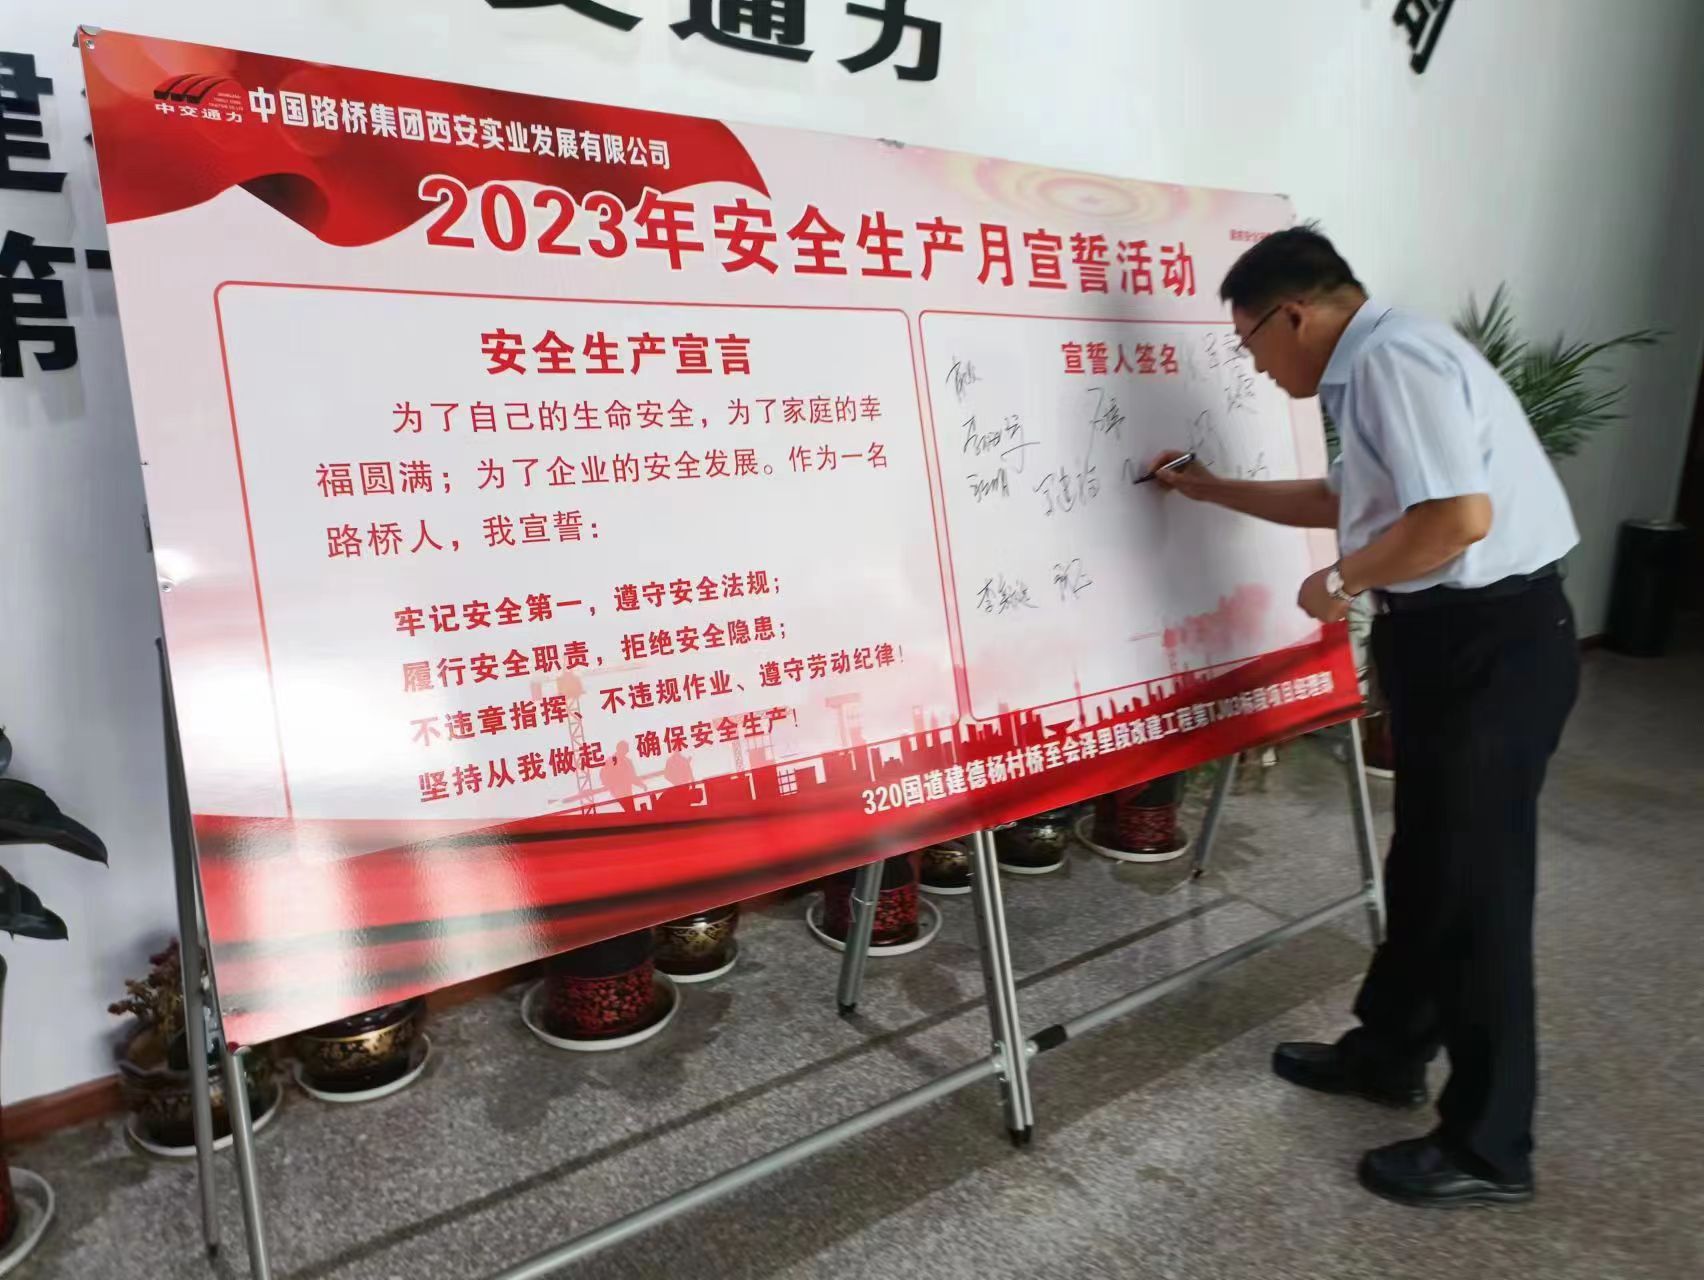 交通力
建
第
中交通力
中国路桥集团西安实业发展有限公司
2023年安全生产月宣誓活动
安全生产宣言
为了自己的生命安全，为了家庭的幸
福圆满；为了企业的安全发展。作为一名
路桥人，我宣誓：
牢记安全第一，遵守安全法规；
履行安全职责，拒绝安全隐患；
不违章指挥、不违规作业、遵守劳动纪律！
坚持从我做起，确保安全生产！
宣誓人签名
320国道建德杨村桥至会泽里段改建工程第TJ03标段项目经理部